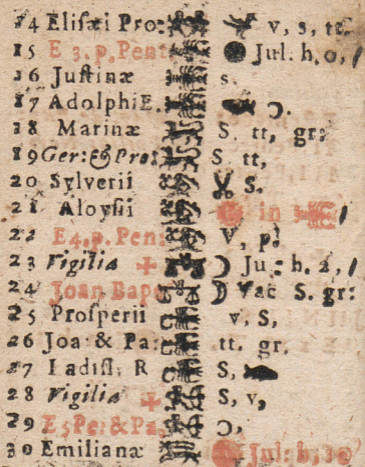 14 Elisæi Pro: v, s, tt.
15 E 3. p. Pent Jul. h. 0,
16 Juſtinæ s.
17 Adolphi E. Ɔ.
18 Marinæ S. tt, gr:
19 Ger: & Pro: S. tt,
20 Sylverii S.
21 Aloyſii in
22 E 4. p. Pen: V, p.
23 Vigilia ☽ Ju: h. 2,
24 Joan Bap: ☽ Vac S. gr:
25 Proſperii v, S,
26 Joa: & Pa: tt. gr.
27 Ladiſl: R S,
28 Vigilia S, v,
29 E 5 Pe: & Pa, Ɔ,
30 Emilianæ Jul: h.